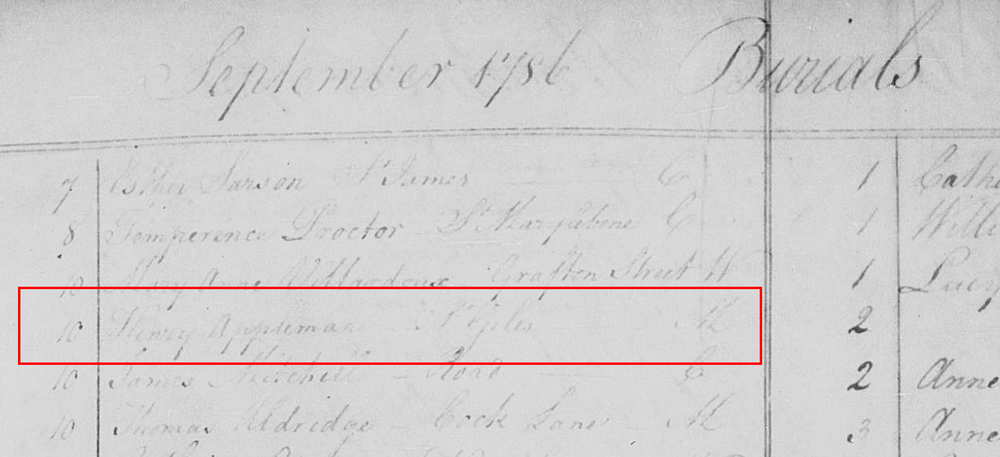 September 1786 Burials
7 Esther Sarson St James C 1 Cathe
8 Temperence Proctor St Marylebone C 1 Willi
10 Mary Anne Grafton Street W 1 Lucy
10 Henry Appleman St Giles M 2
10 James Mitchell Road C 2 Anne
10 Thomas Aldridge Cock Lane M 3 Anne